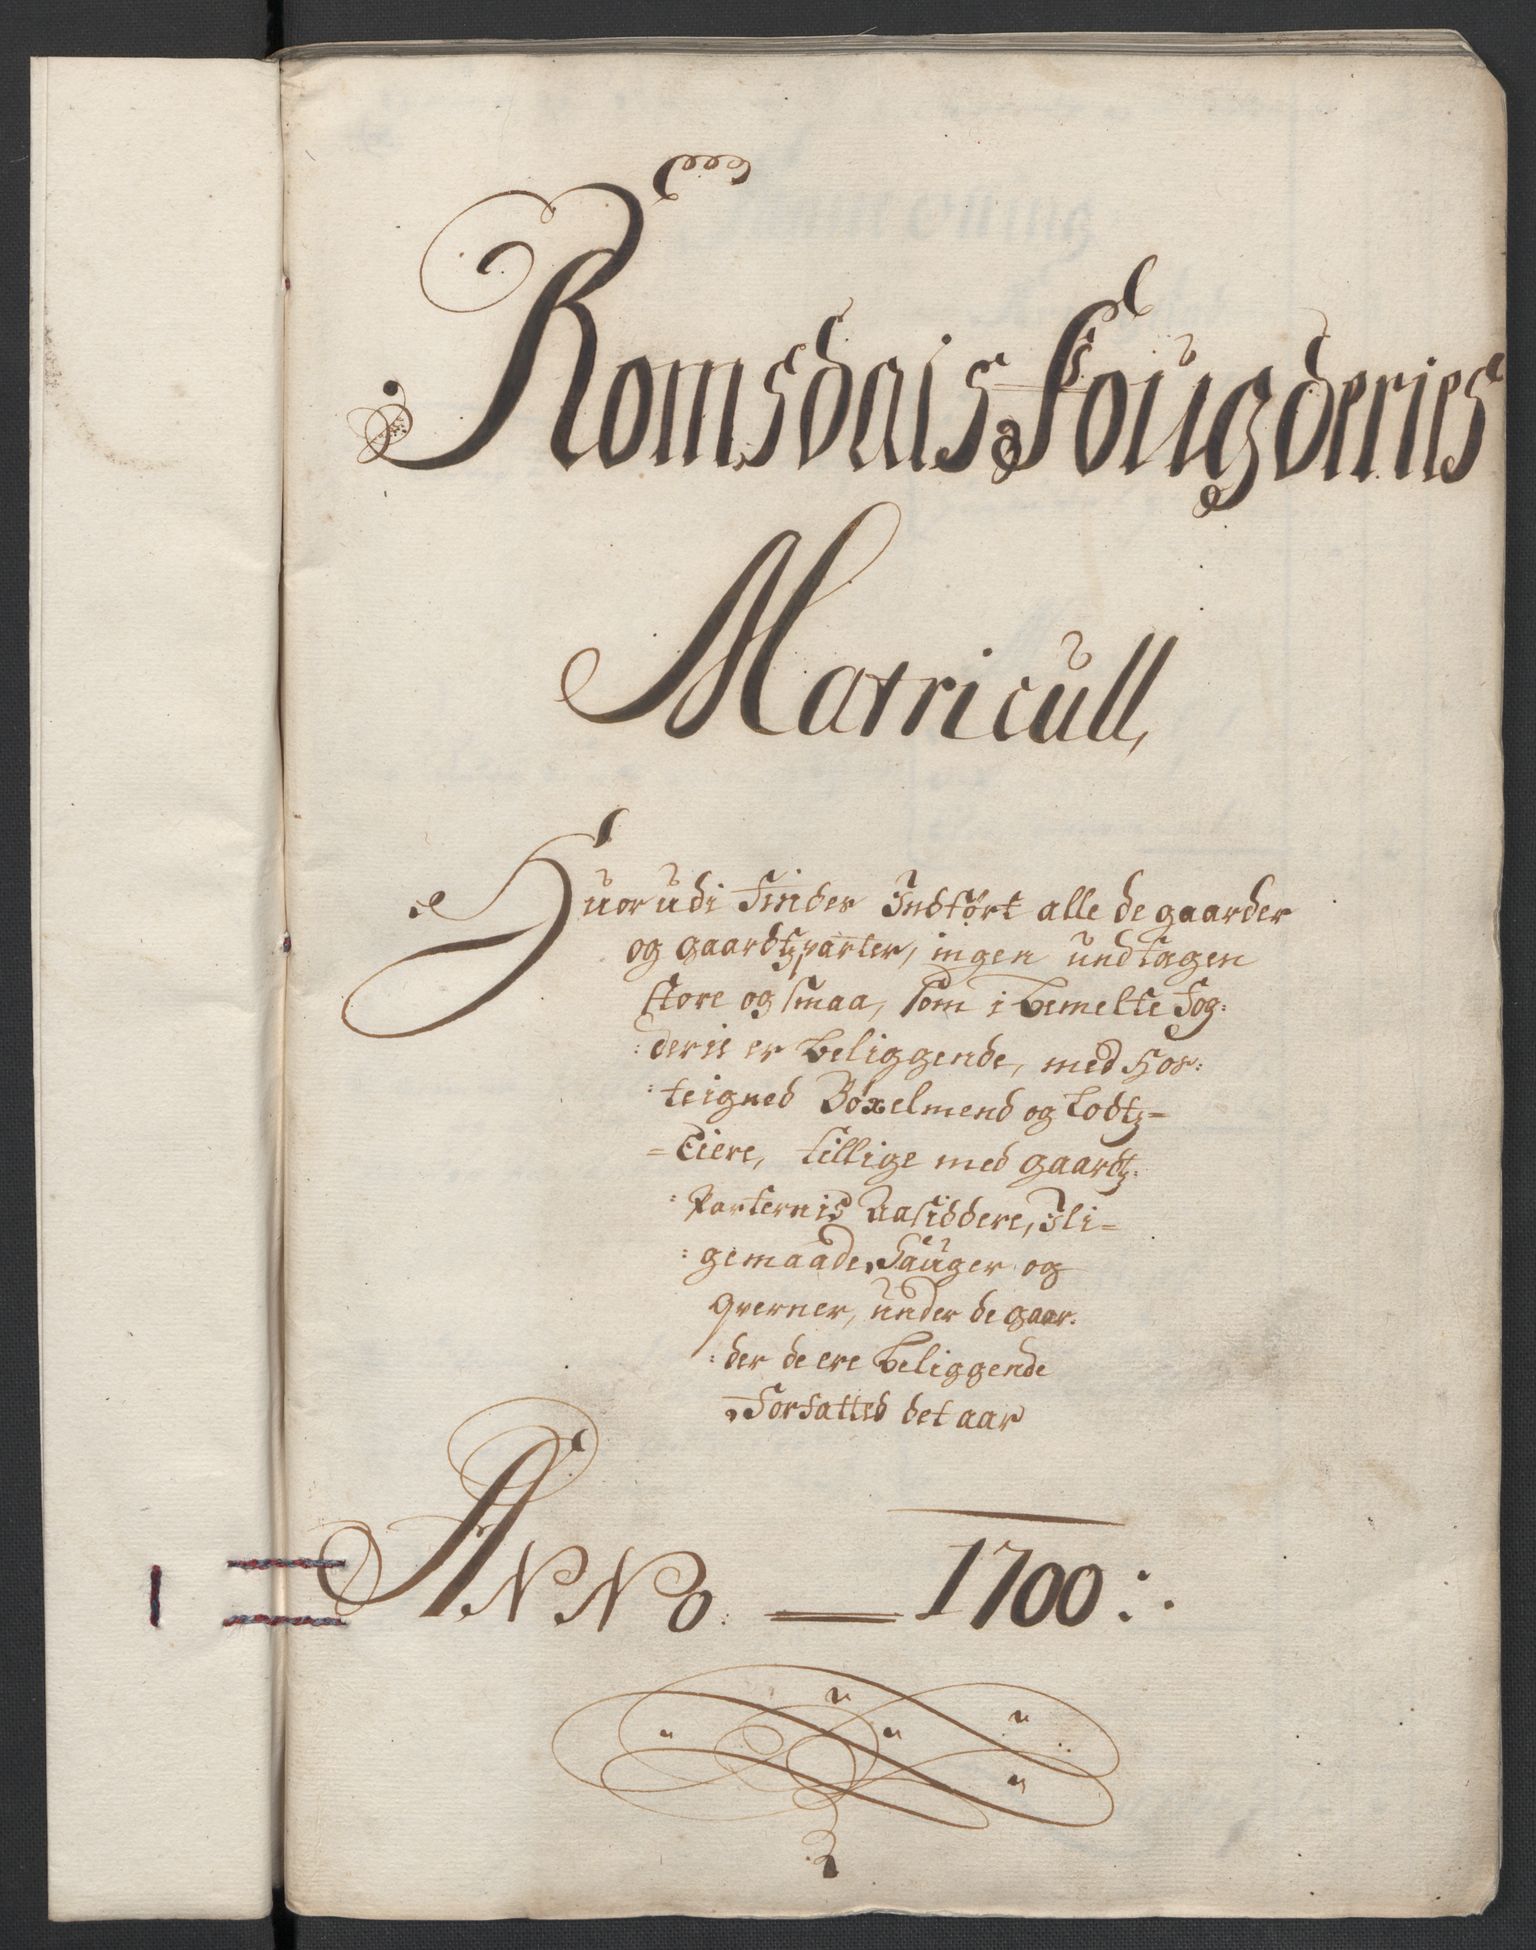 Romsdals Fougderies
Matricull,
Huorudi Findes Indført alle de gaarder
og gaardtzparter, ingen undtagen
store og smaa, som i bemelte Fog:
:derie er beliggende, med Hos:
:teigned Böxelmend og Lodtz=
=Eiere, tillige med gaardtz:
:Parternis Aasiddere, Ili=
:gemaade, Sauger og
qverner, under de gaar:
:der de ere beliggende
Forfatted det aar
ANNO: — 1700: